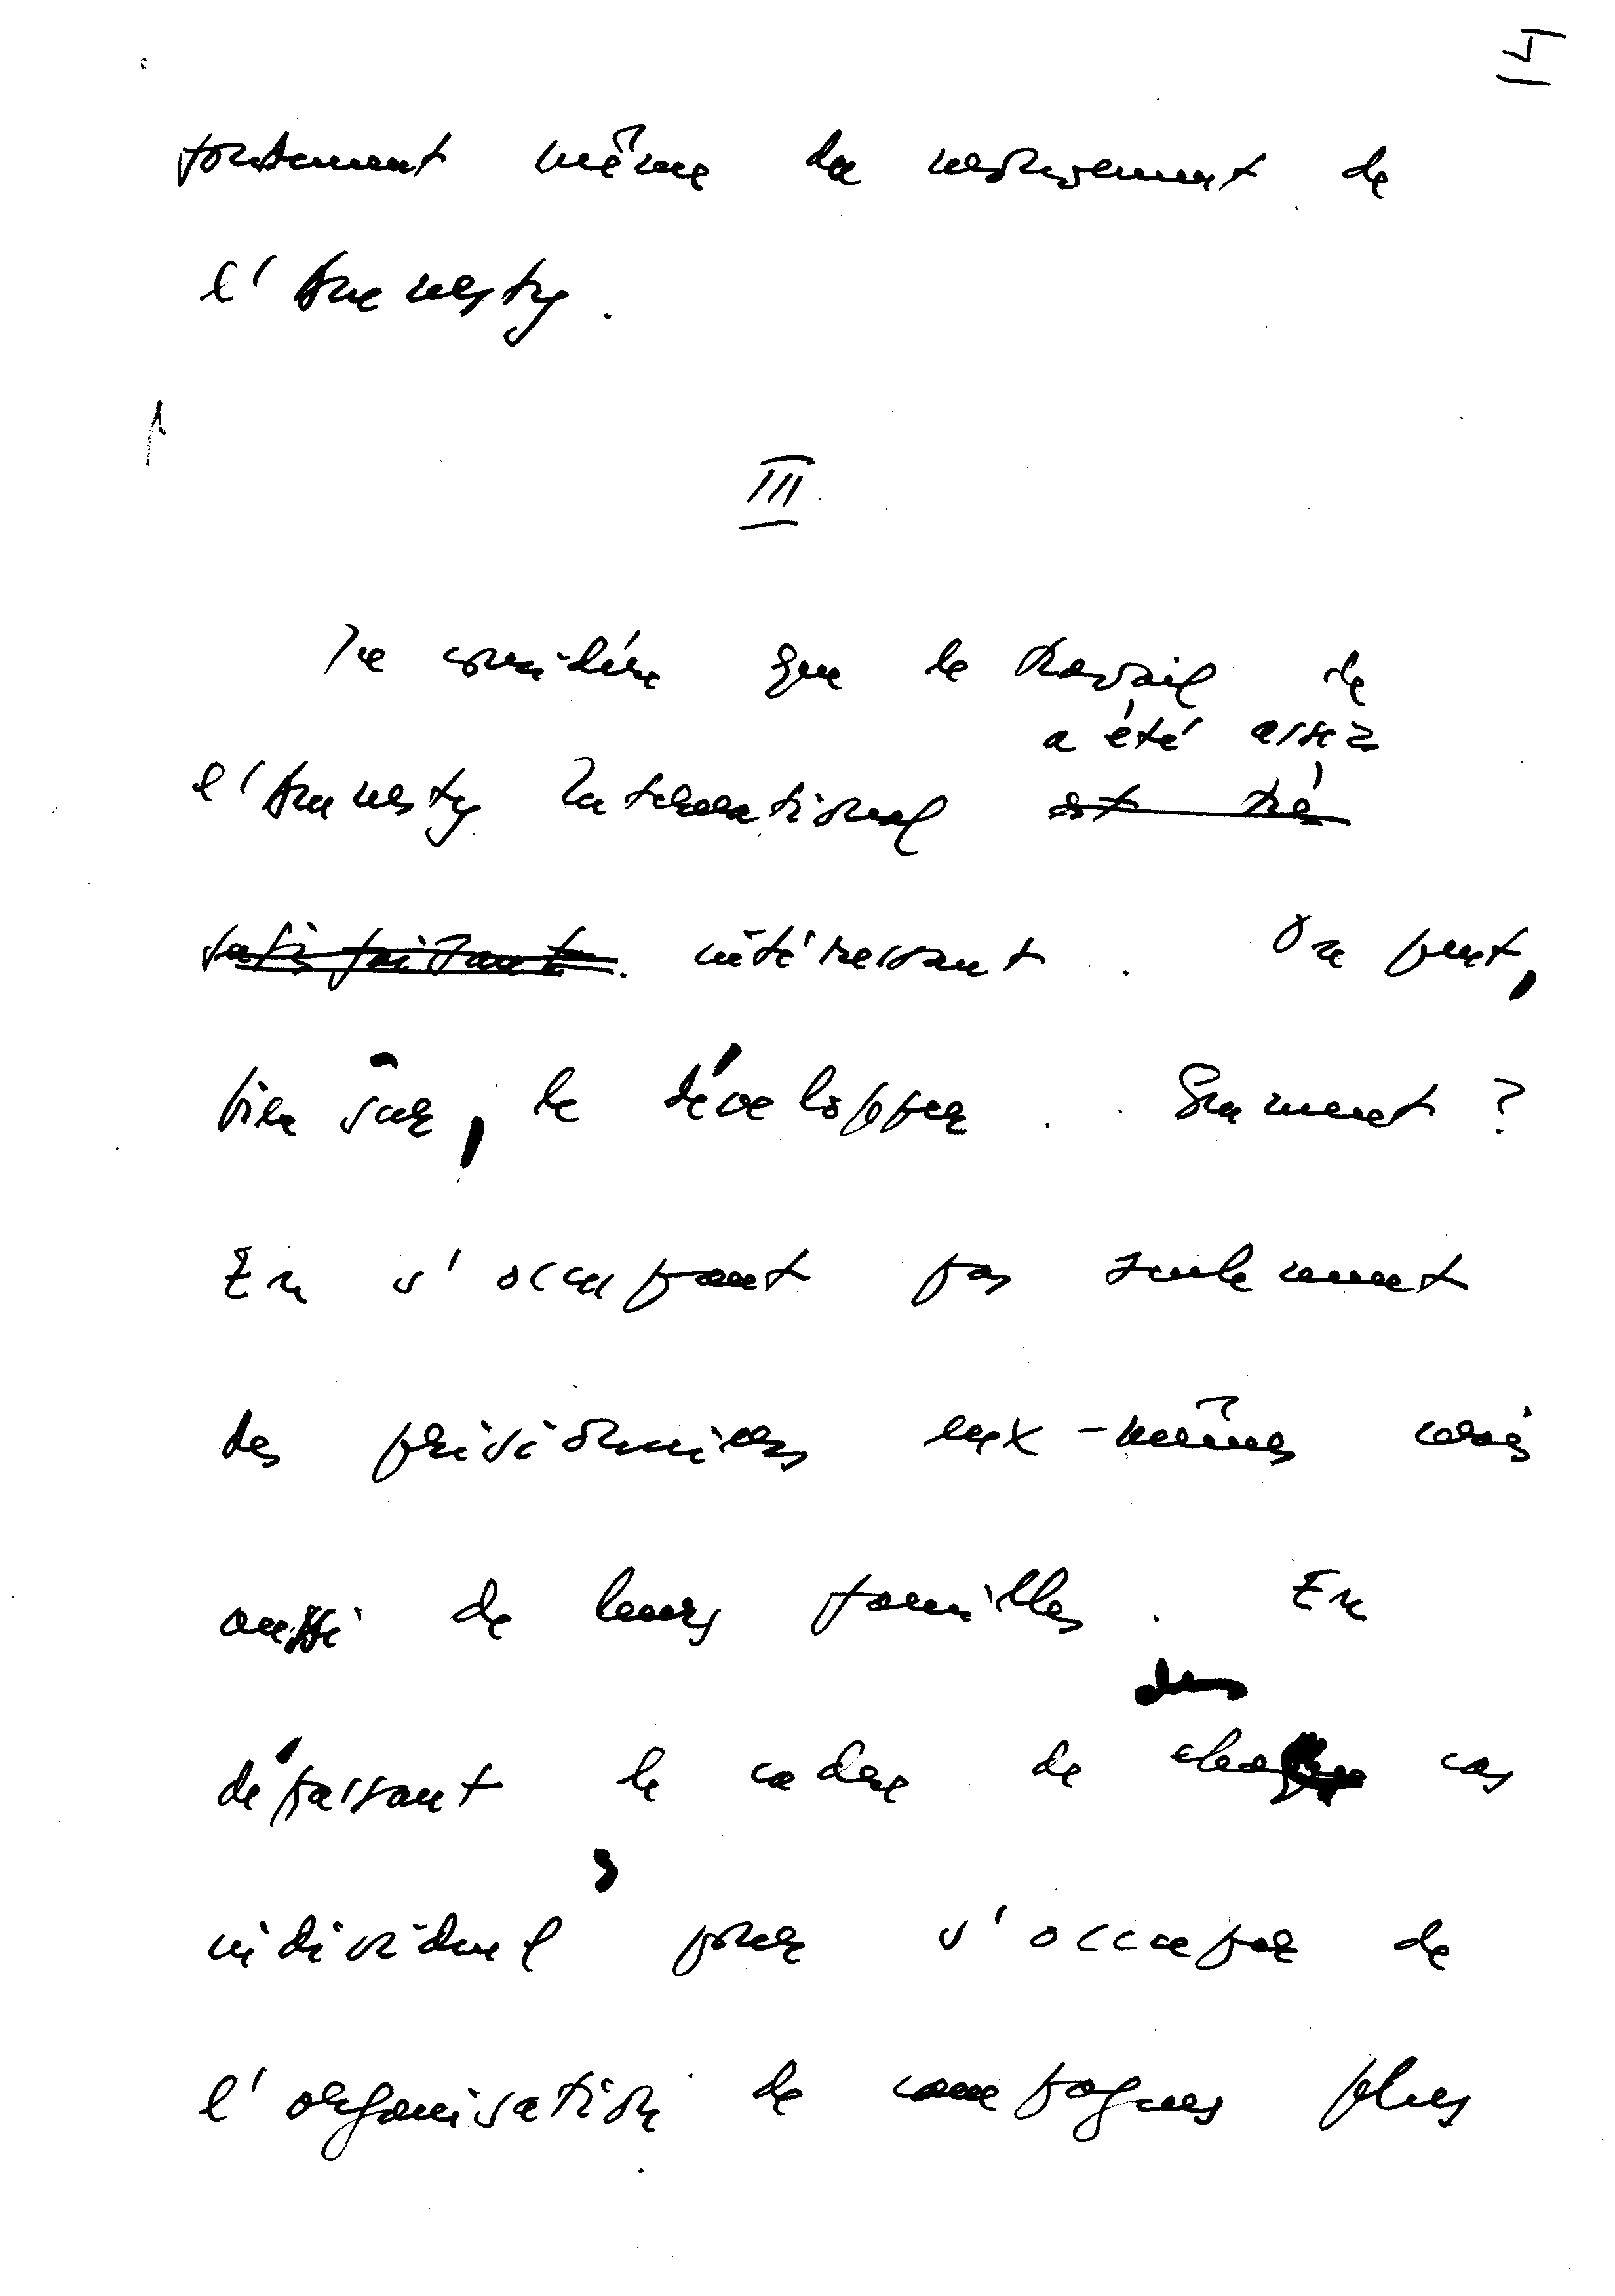 fondement même du mouvement de
l'Amnesty.
III
Je considère que le travail de
a été assez
l'Amnesty International est très
satisfaisant. intéressant. On peut,
bien sûr, le développer. Comment ?
En s'occupant pas seulement
des prisonniers eux-mêmes mais
aussi de leurs familles. En
des
dépassant le cadre de cas
individuel, pour s'occuper de
l'organisation de campagnes plus